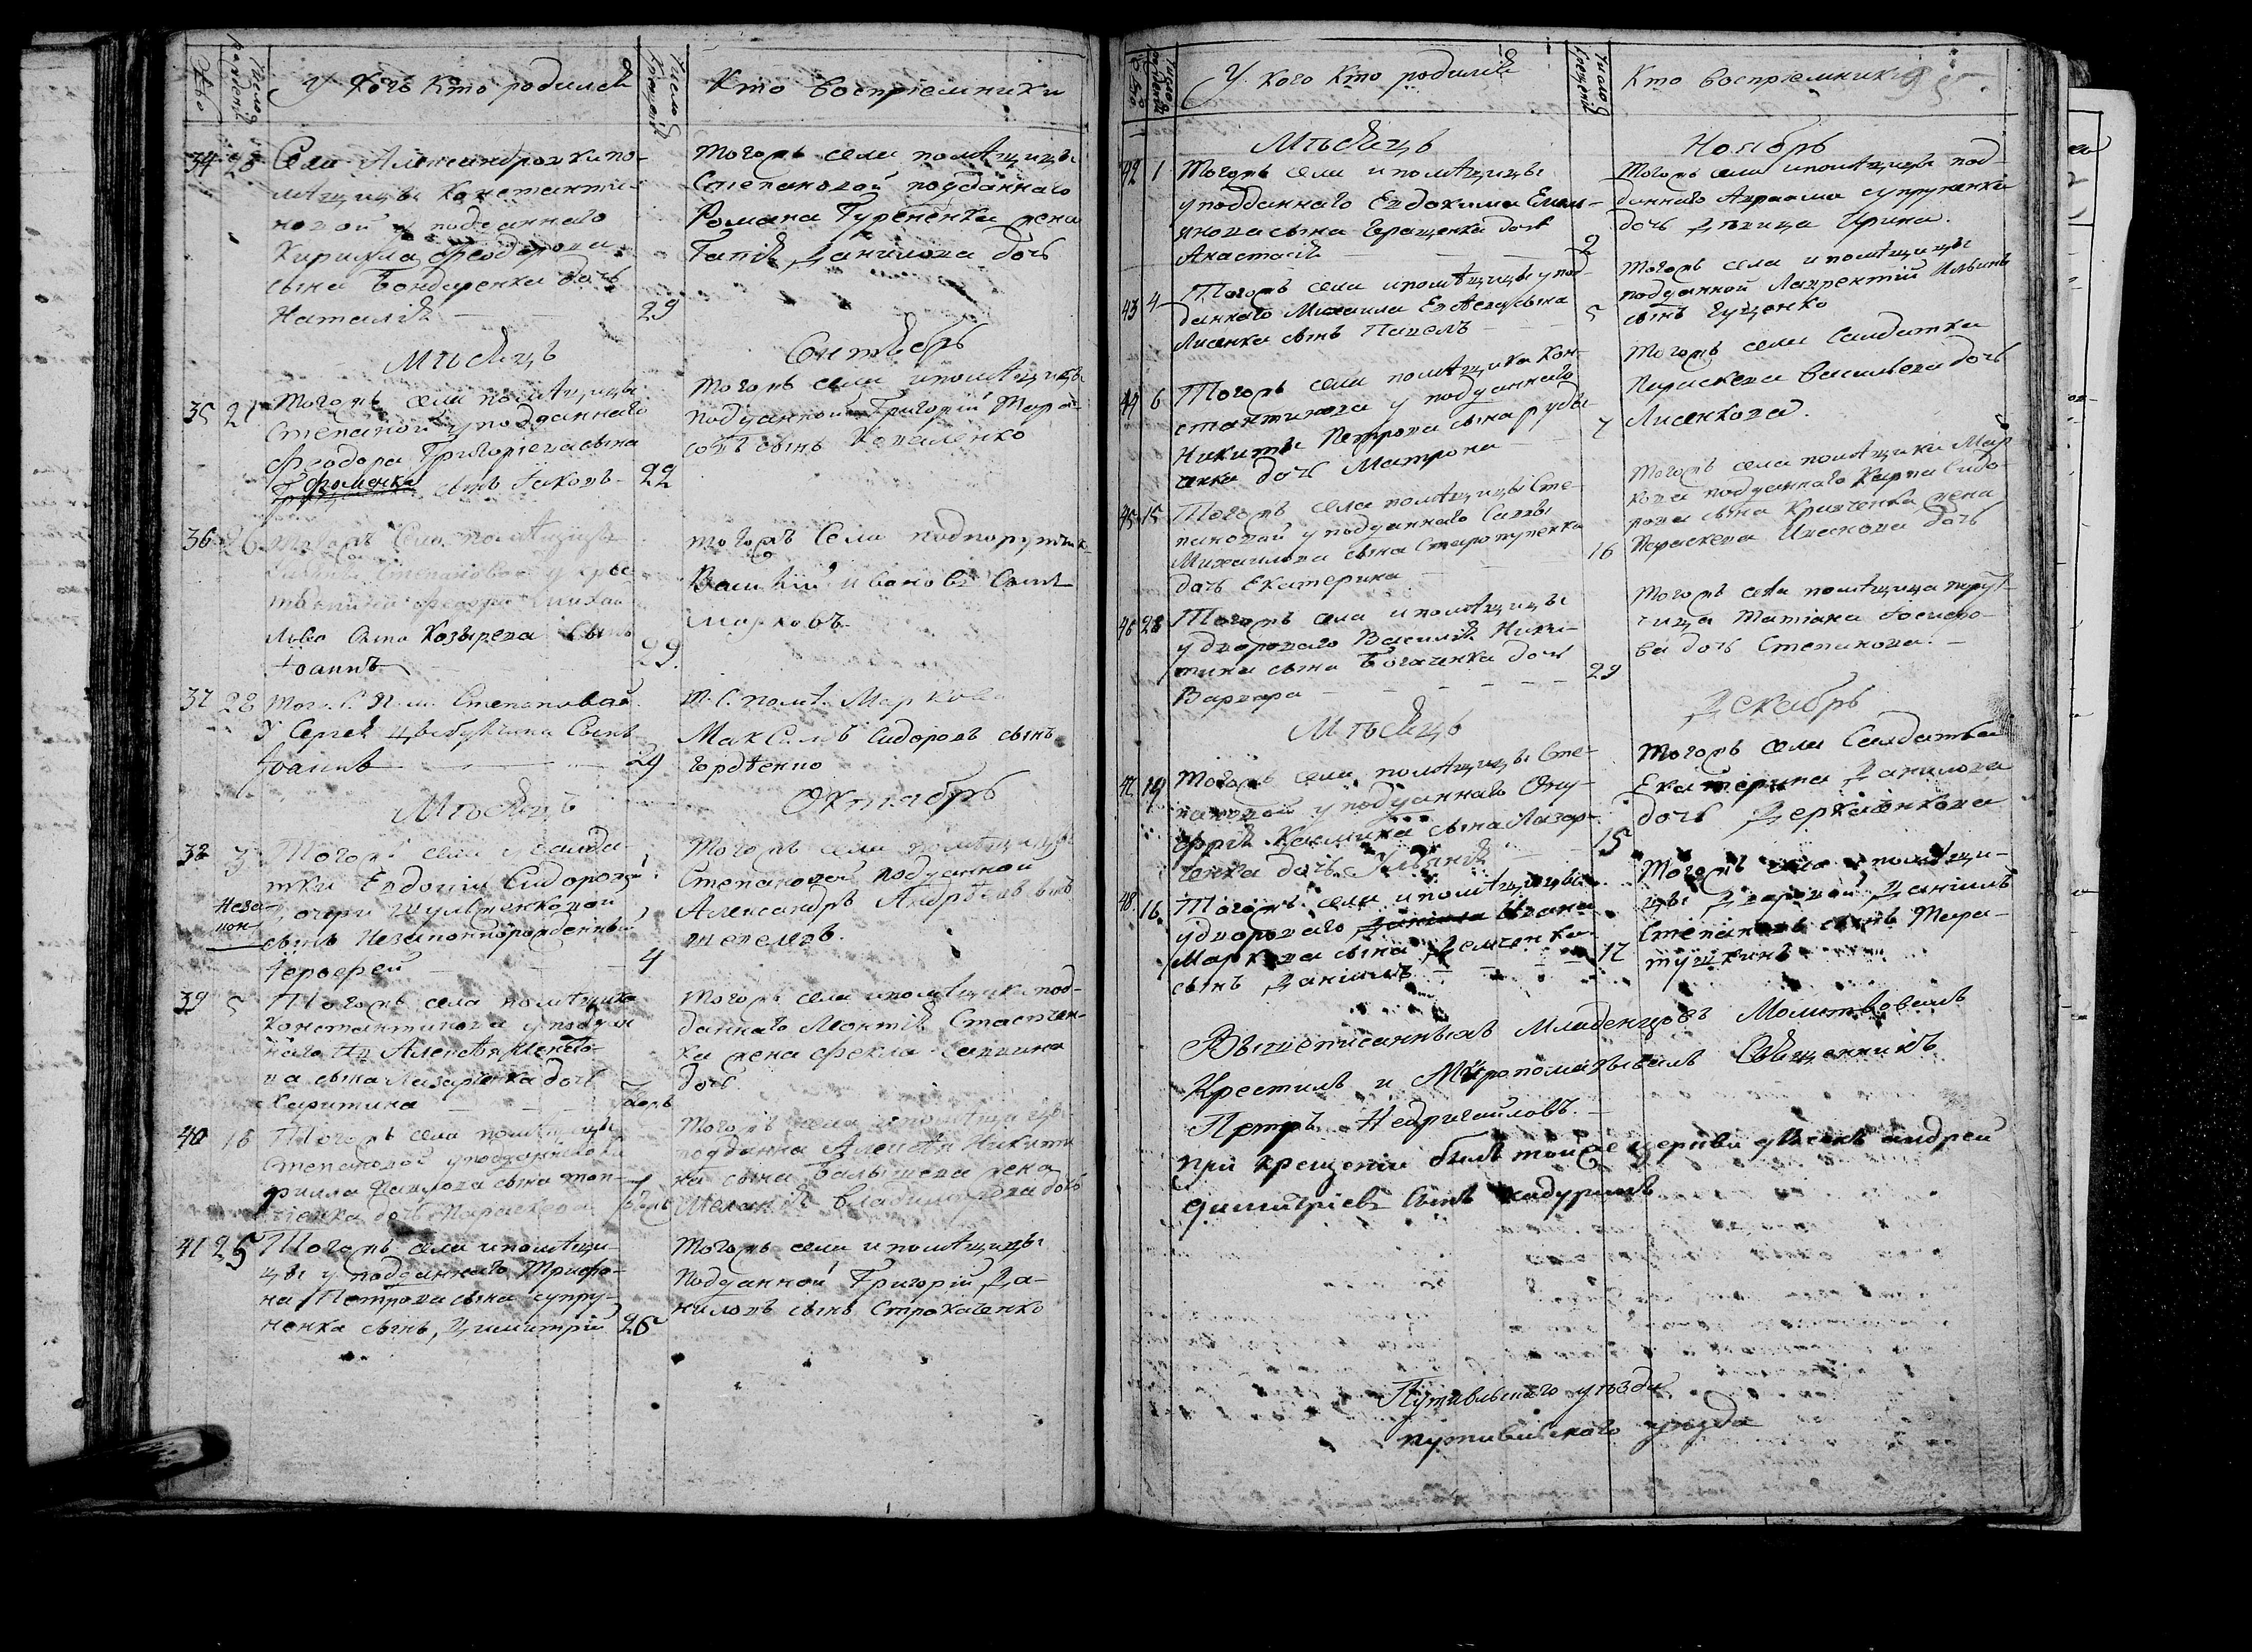 Число рожденій
У кого кто родился
Число крещенія
Кто воспріемники
34 28 Села Александровки по-
мѣщицы Константи-
новой у подданнаго
Кирилла Феодорова
сына Бондаренка дочь
Наталія 29
Тогожъ села помѣщицы
Степановой подданнаго
Романа Гурененка жена
Гапія Данилова дочь
Мѣсяцъ Сентябрь
35 21 Тогожъ села помѣщицы
Степановой у подданнаго
Феодора Григоріева сына
Фоменка сынъ Іаковъ 22
Тогожъ села и помѣщицы
подданной Григорій Тара-
совъ сынъ Коваленко
36 26 Тогожъ Села помѣщицы
Степановой у
Феодора
сына Козырева Сынъ
Іоаннъ 29.
тогожъ Села подпорутчикъ
Василій Ивановъ Сынъ
Марковъ
37 28 Того С. Пом. Степановой
У Сергея Сынъ
Іоаннъ 29
Т. С. помѣ. Маркова
Максимъ Сидоровъ сынъ
гордѣенко
Мѣсяцъ Октябрь
38 3 Тогожъ села Салда-
тки Евдокіи Сидоровой
дочери Шульженковой
Неза-
кон
сынъ Незаконнорожденный
Іероѳей 4
Тогожъ села помѣщицы
Степановой подданной
Александръ Андрѣевъ сынъ
Шевелевъ.
39 5 Тогожъ села помѣщика
Константинова у поддан
наго Алексѣя
ва сына Лазаренка дочь
Харитина
Тогожъ села и помѣщика под-
даннаго Леонтія
ка жена Фекла
дочь
40 16 Тогожъ села помѣщицы
Степановой у подданнаго Ки
рилла Павлова сына
дочь Параскева
Тогожъ села и помѣщицы
подданна Алексѣя Никити
на сына Балышева жена
Меланія Владимірова дочь
41 25 Тогожъ села и помѣщи-
цы у подданнаго Трифо-
на Петрова сына супру-
ненка сынъ, Димитрій 26
Тогожъ села и помѣщицы
Подданной Григорій Да-
ниловъ сынъ Строкаченко
Число рожденія
У кого кто родился
Число крещенія
Кто воспріемники 95.
Мѣсяцъ Ноябрь
42 1 Тогожъ села и помѣщицы
у подданнаго Евдокима Емел-
янова сына Геращенка дочь
Анастасія 2
Тогожъ села и помѣщицы под-
даннаго Авраама супруненка
дочь дѣвица Ирина.
43 4 Тогожъ села и помѣщицы у под-
даннаго Михаила Евсѣева сына
Лисенка сынъ Павелъ 5
Тогожъ села и помѣщицы
подданной Лаврентій Ильинъ
сынъ Гуценко
44 6 Тогожъ села помѣщика Кон-
стантинова у подданнаго
Никиты Петрова сына рубы
анка дочь Матрона 7
Тогожъ села Салдатка
Параскева Васильева дочь
Лисенкова.
45 15 Тогожъ села помѣщицы Сте-
пановой у подданнаго Саввы
Михайлова сына Старопупенка
дочь Екатерина 16
Тогожъ села помѣщика Мар
кова подданнаго Карпа Сидо-
рова сына Кравченка жена
Параскева Иванова дочь
46 28 Тогожъ села и помѣщицы
у двороваго Василія Ники-
тина сына Богаченка дочь
Варвара 29
Тогожъ села помѣщица
Татіана Іосифо-
ва дочь Степанова.
Мѣсяцъ Декабрь
47 14 Тогожъ села помѣщицы Сте-
пановой у подданнаго Ону-
фрія Космина сына Лазар-
ченка дочь Іуліанія 15
Тогожъ села Салдатка
Екатерина Данилова
дочь Деркаченкова
48 16 Тогожъ села и помѣщицы
у двороваго Даніила Ивана
Маркова сына Демченка
сынъ Даніилъ 17
Тогожъ села и помѣщи-
цы Дворовой Даніилъ
Степановъ сынъ Мара-
тушкинъ
Вышеписанныхъ Младенцовъ Молитвовалъ
Крестилъ и Мѵропомазывалъ Священникъ
Петръ Недригайловъ.
При крещеніи былъ тойже церкви дьякъ андрей
димитріевъ Сынъ кадуринъ
Путивльскаго уѣзда
путивльскаго уѣзда